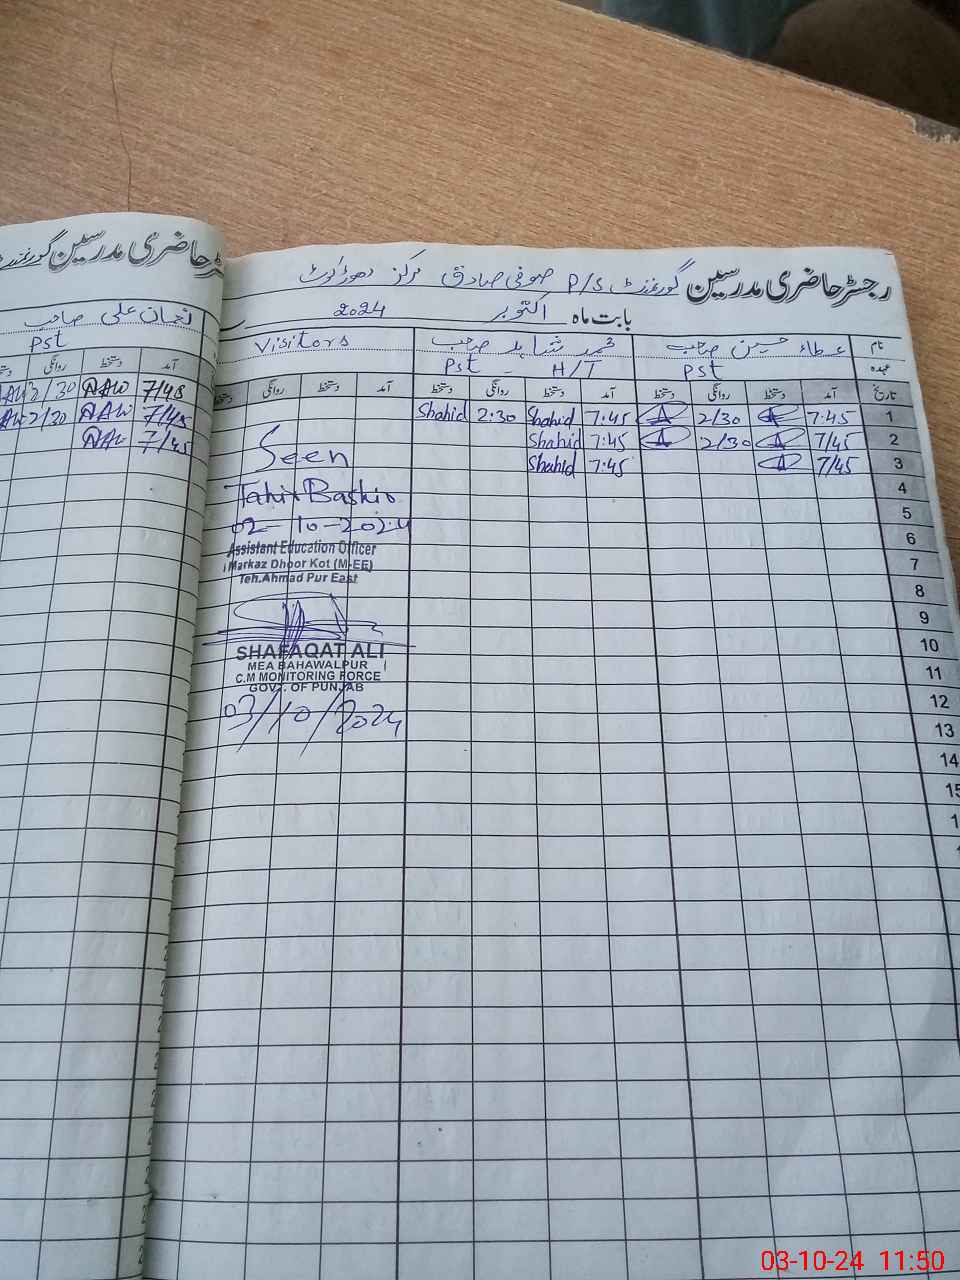 رجسٹر حاضری مدرسین گورنمنٹ P/S صوفی صادق مرکز دھوڑکوٹ
بابت ماہ اکتوبر 2024
نام عطاء حسین صاحب محمد شاہد صاحب Visitors
عہدہ PST Pst - H/T
تاریخ آمد دستخط روانگی دستخط آمد دستخط روانگی دستخط آمد دستخط روانگی دستخط
1 7:45 2/30 7:45 Shahid 2:30 Shahid
2 7/45 2/30 7:45 Shahid
3 7/45 7:45 Shahid
4
5
6
7
8
9
10
11
12
13
14
15
Seen
Tahir Bashir
02-10-2024
Assistant Education Officer
Markaz Dhoor Kot (M-EE)
Teh.Ahmad Pur East
SHAFAQAT ALI
MEA BAHAWALPUR
C.M MONITORING FORCE
GOVT. OF PUNJAB
03/10/2024
رجسٹر حاضری مدرسین گورنمنٹ
نعمان علی صاحب
Pst
آمد دستخط روانگی
7/45 2/30
7/45 2/30
7/45
03-10-24 11:50